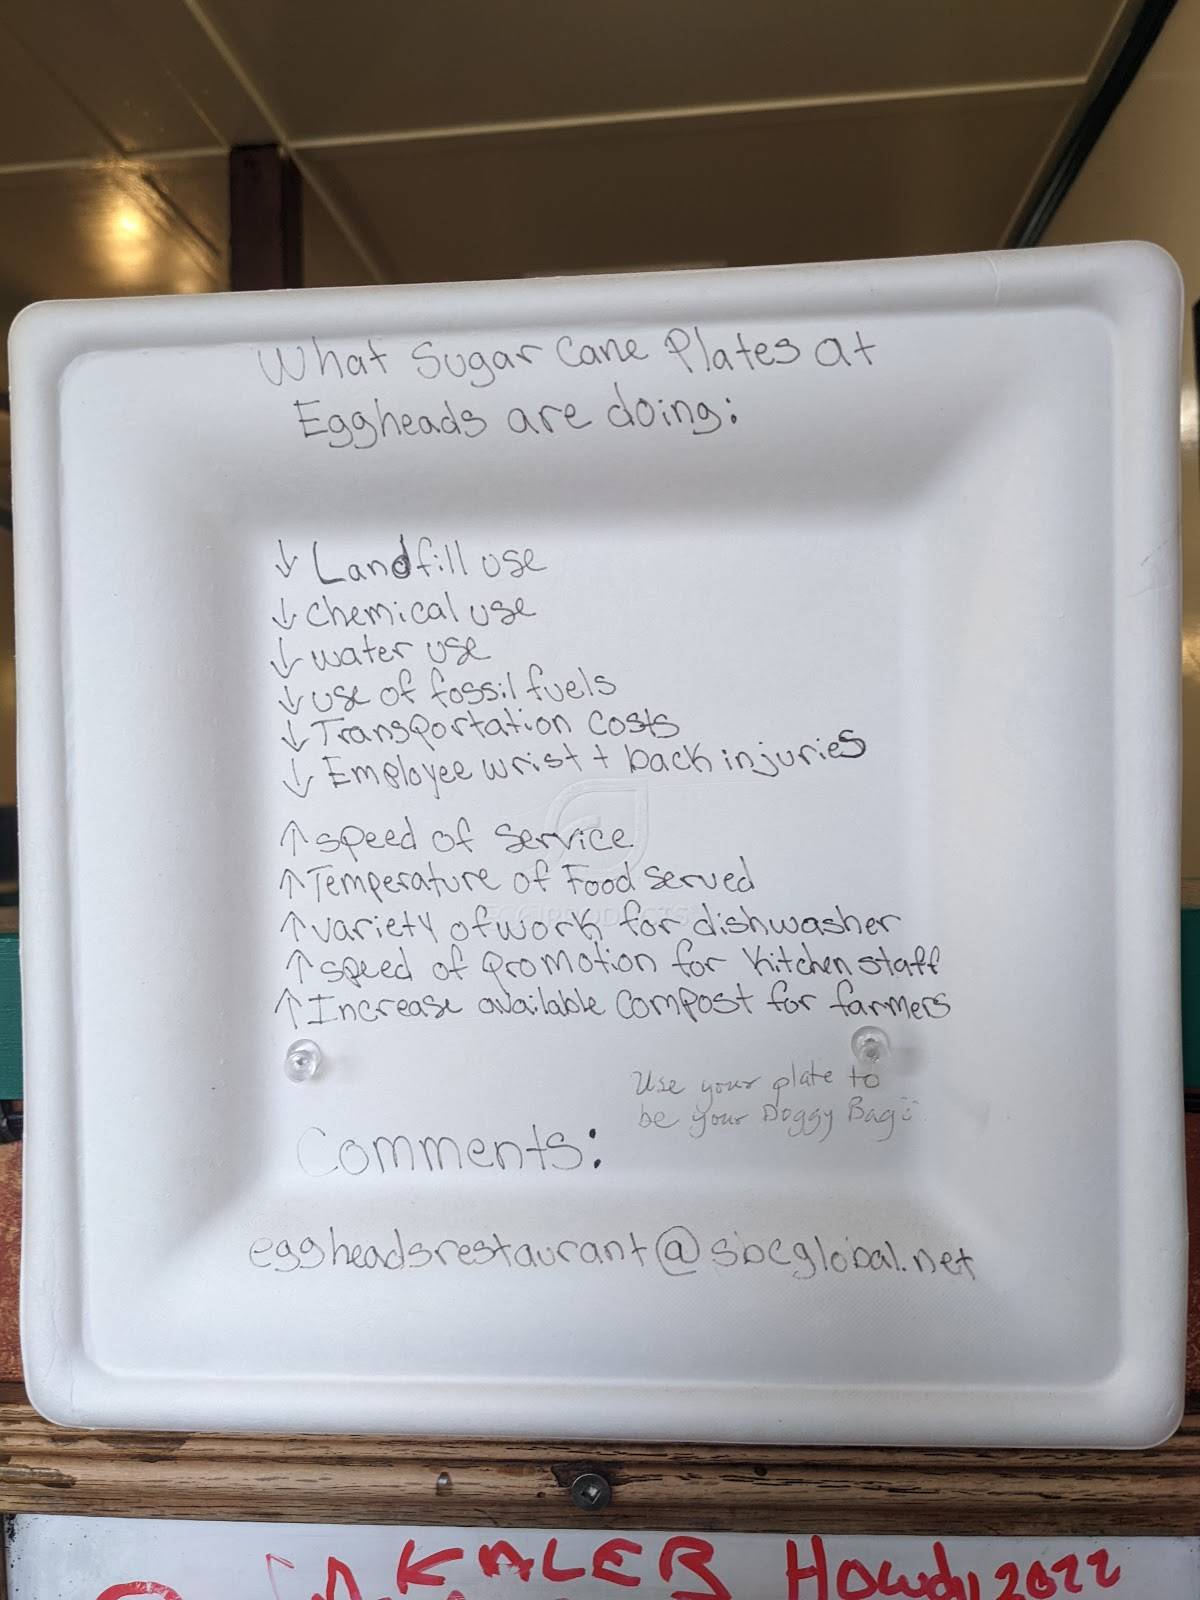 What Sugar Cane Plates at
Eggheads are doing:
↓ Landfill use
↓ chemical use
↓ water use
↓ use of fossil fuels
↓ Transportation costs
↓ Employee wrist + back injuries
↑ speed of service
↑ Temperature of Food served
↑ variety of work for dishwasher
↑ speed of promotion for kitchen staff
↑ Increase available compost for farmers
Use your plate to
be your Doggy Bag
Comments:
eggheadsrestaurant@sbcglobal.net
KALEB Howdy 2022